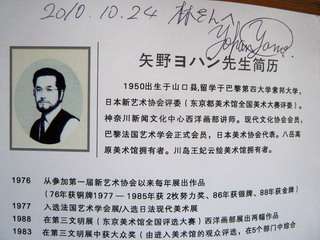 2010.10.24 林さんへ
Yohan Yano
矢野ヨハン先生简历
1950出生于山口县,留学于巴黎第四大学索邦大学,
日本新艺术协会评委(东京都美术馆全国美术大赛评委)。
神奈川新闻文化中心西洋画部讲师。现代文化协会会员,
巴黎法国艺术学会正式会员,日本美术协会代表。八岳高
原美术馆拥有者。川岛王妃云绘美术馆拥有者。
1976 从参加第一届新艺术协会以来每年展出作品
(76年获铜牌1977—1985年获2枚努力奖、86年获银牌、88年获金牌)
1977 入选法国艺术学会展/入选日法现代美术展
1988 在第三文明展(东京美术馆全国评选大赛)西洋画部展出两幅作品
1983 在第三文明展中获大众奖(由进入美术馆的观众评选,在5个部门中综合